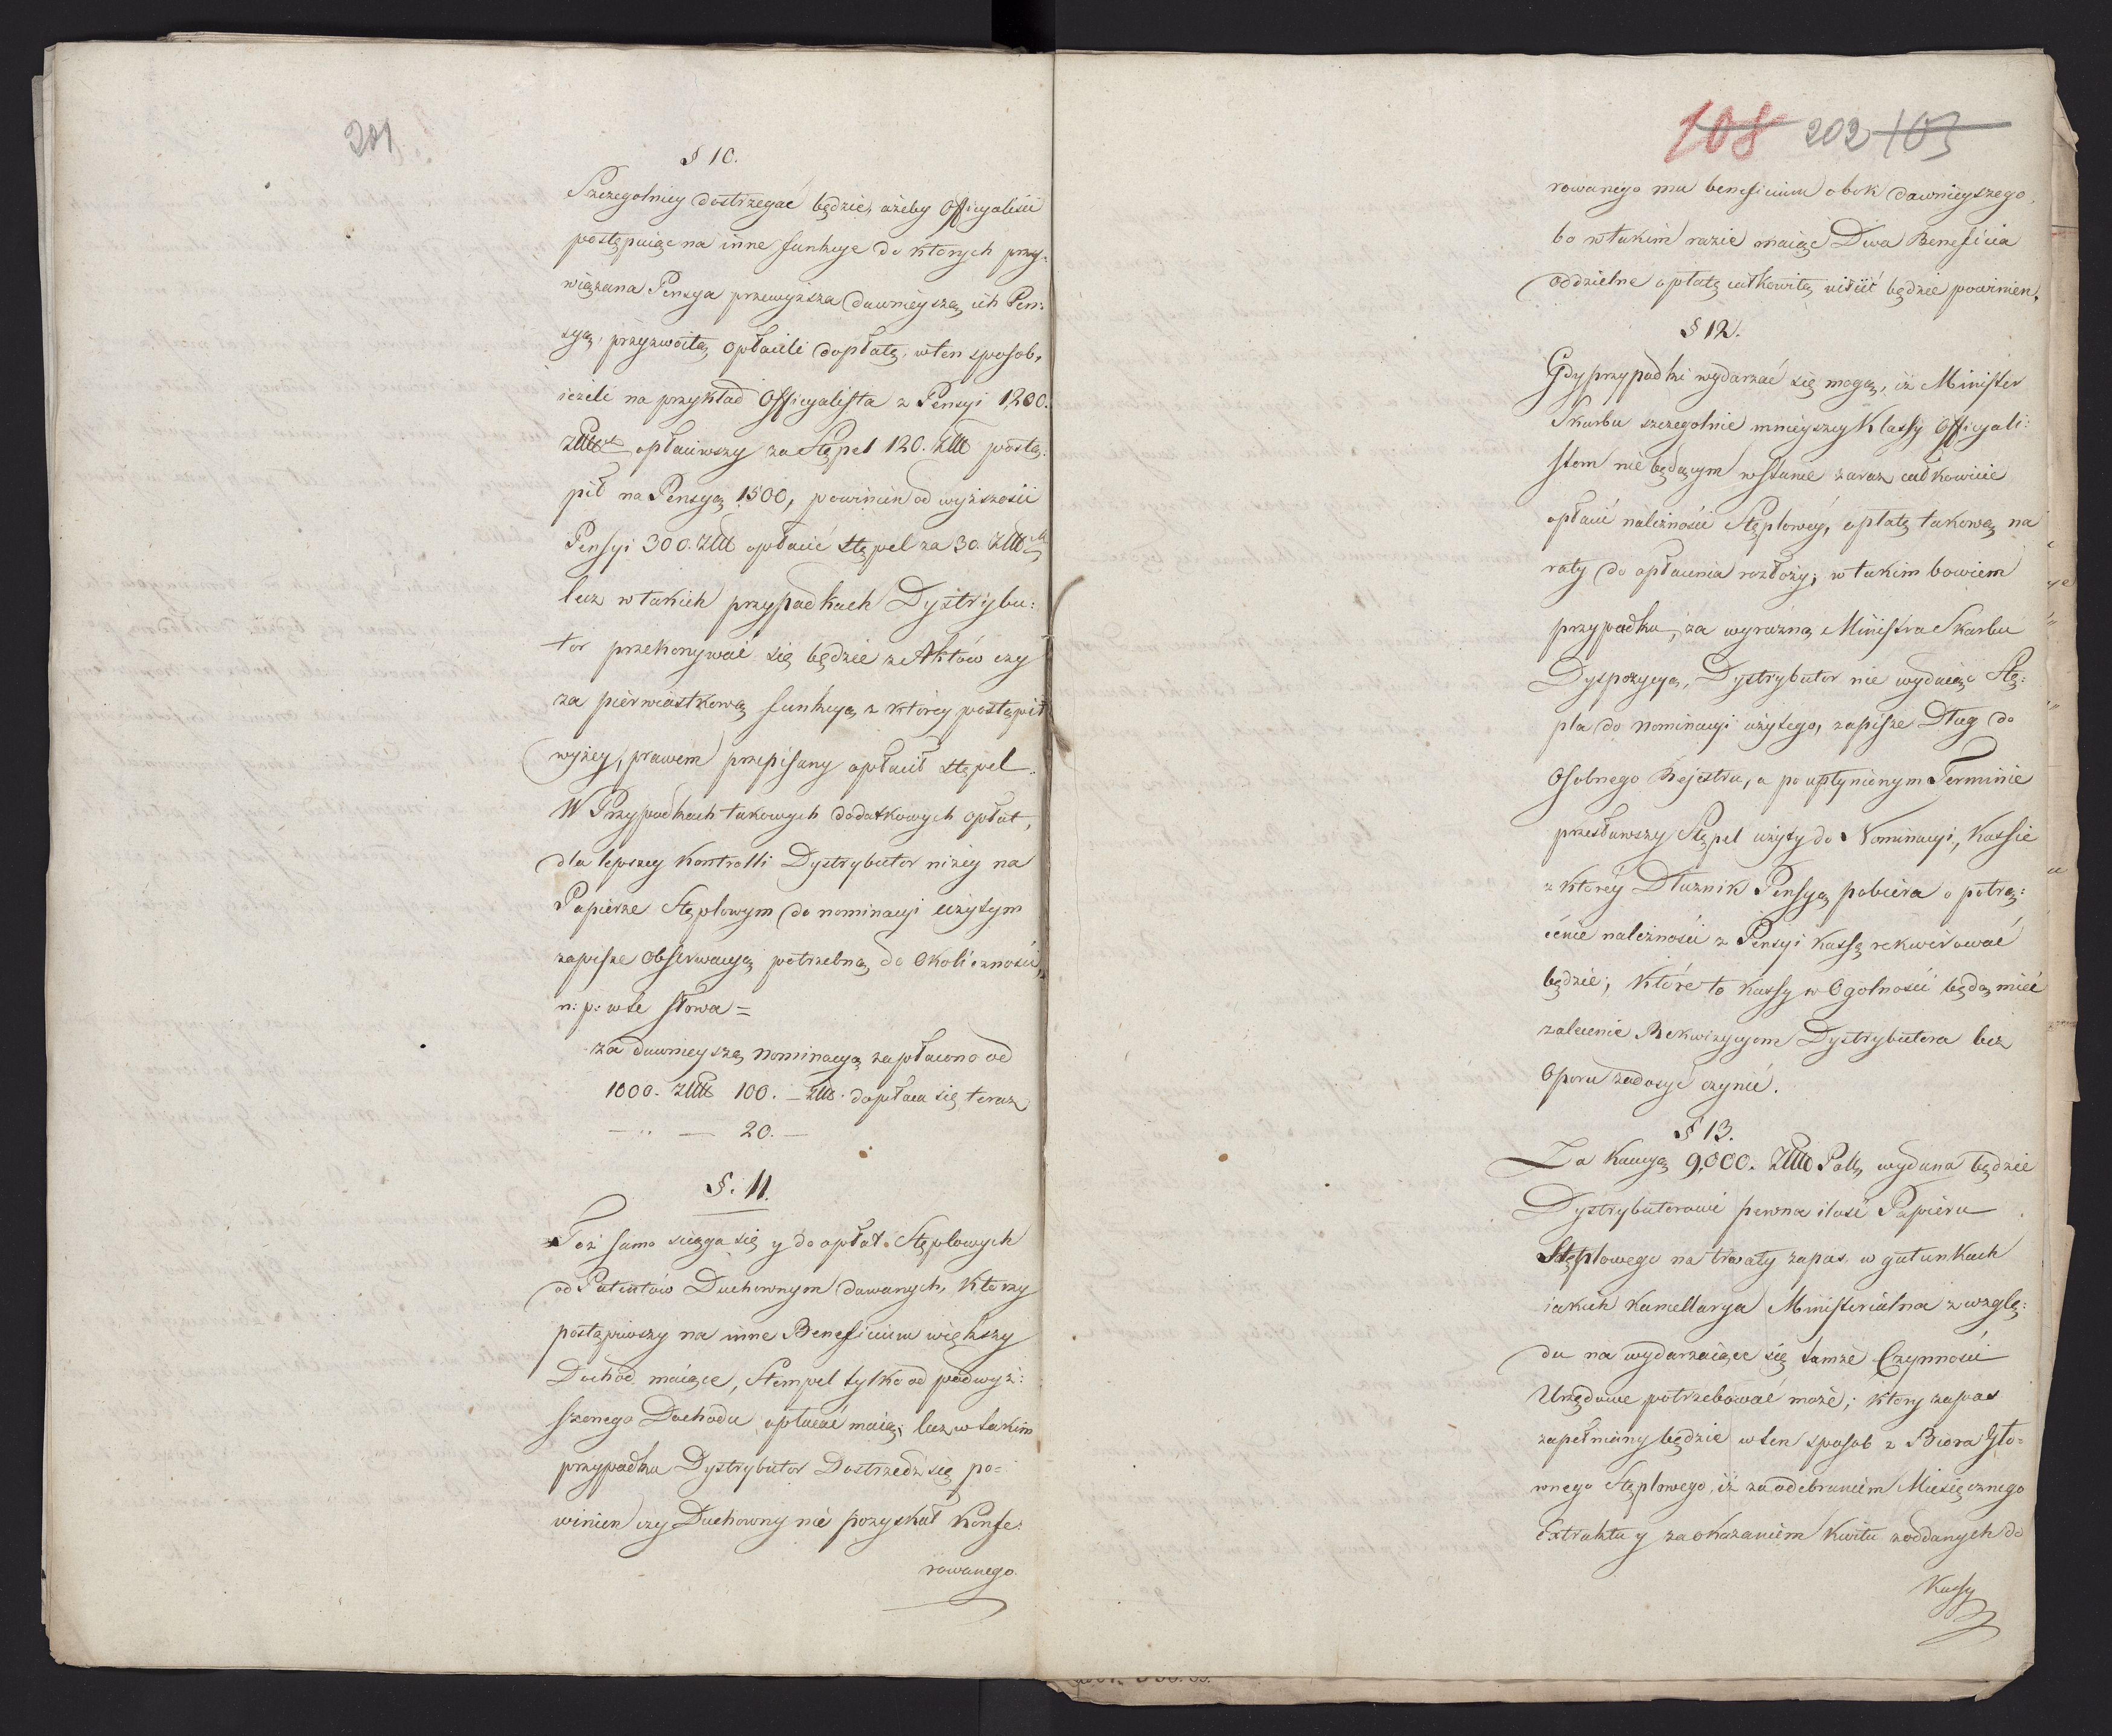 201.
§ 10.
Szczegolniey dostrzegać będzie, ażeby Officyaliści
postępuiąc na inne funkcye do ktorych przy:
wiązana Pensya przewyższa dawnieyszą ich Pen:
syą, przyzwoitą opłacili dopłatę, w ten sposob,
ieżeli na przykład Officyalista z Pensyi 1,200.
opłaciwszy za Stępel 120. postą:
pił na Pensyą 1500, powinien od wyższości
Pensyi 300. opłacić stępel za 30.
lecz w takich przypadkach Dystrybu:
tor przekonywać się będzie z Aktów czy
za pierwiastkową funkcyą z ktorey postąpił
wyżey, prawem przepisany opłacił stępel.
W Przypadkach takowych dodatkowych opłat,
dla lepszey Kontrolli Dystrybutor niżey na
Papierze Stęplowym do nominacyi użytym
zapisze obserwacyą potrzebną do Okoliczności,
n: p: w te słowa =
za dawnieyszą nominacyą zapłacono od
1000. 100. dopłaca się teraz
— " — 20. —
§. 11.
Toż samo ściąga się y do opłat Stęplowych
od Patentów Duchownym dawanych, Ktorzy
postąpiwszy na inne Beneficium większy
Dochod maiące, Stempel tylko od podwyż:
szonego Dochodu opłacać maią; lecz w takim
przypadku Dystrybutor Dostrzedz się po=
winien czy Duchowny nie pozyskał Konfe:
rowanego.
108 202 103
rowanego mu beneficium obok dawnieyszego,
bo w takim razie maiąc Dwa Beneficia
oddzielne opłatę całkowitą uiścić będzie powinien.
§ 12.
Gdy przypadki wydarzać się mogą, iż Minister
Skarbu szczegolnie mnieyszey Klassy Officyali:
stom nie będącym w Stanie zaraz całkowicie
opłacić należności Stęplowéy, opłatę takową na
raty do opłacenia rozłoży; w takim bowiem
przypadku, za wyrazną Ministra Skarbu
Dyspozycyą, Dystrybutor nie wydaiąc Stę:
pla do nominacyi użytego, zapisze Dług do
Osobnego Rejestru, a po upłynionym Terminie
przesławszy Stępel użyty do Nominacyi, Kassie
z ktorey Dłuznik Pensyą pobiera o potrą:
cenie należności z Pensyi Kassę rekwirować
będzie; które to Kassy w Ogolności będą mieć
zalecenie Rekwizycyom Dystrybutora bez
Oporu zadosyć czynić.
§ 13.
Za Kaucyą 9,000. Pol. wydana będzie
Dystrybutorowi pewna ilość Papieru
Stęplowego na trwały zapas, w gatunkach
iakich Kancellarya Ministerialna z wzglę:
du na wydarzaiące się tamże Czynności
Urzędowe potrzebować może; ktory zapas
zapełniany będzie w ten sposob z Biora Gło=
wnego Stęplowego, iż za odebraniem Miesięcznego
Extraktu y za okazaniem Kwitu z oddanych do
Kassy